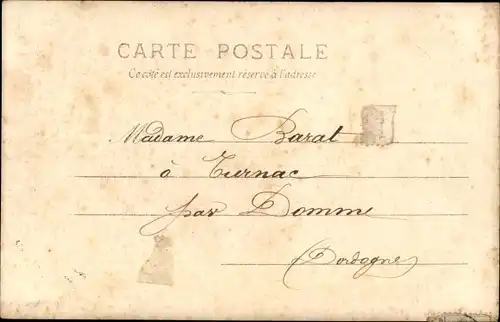 CARTE POSTALE
Ce côté est exclusivement réservé à l'adresse
Madame Barat
à Turnac
par Domme
(Dordogne)